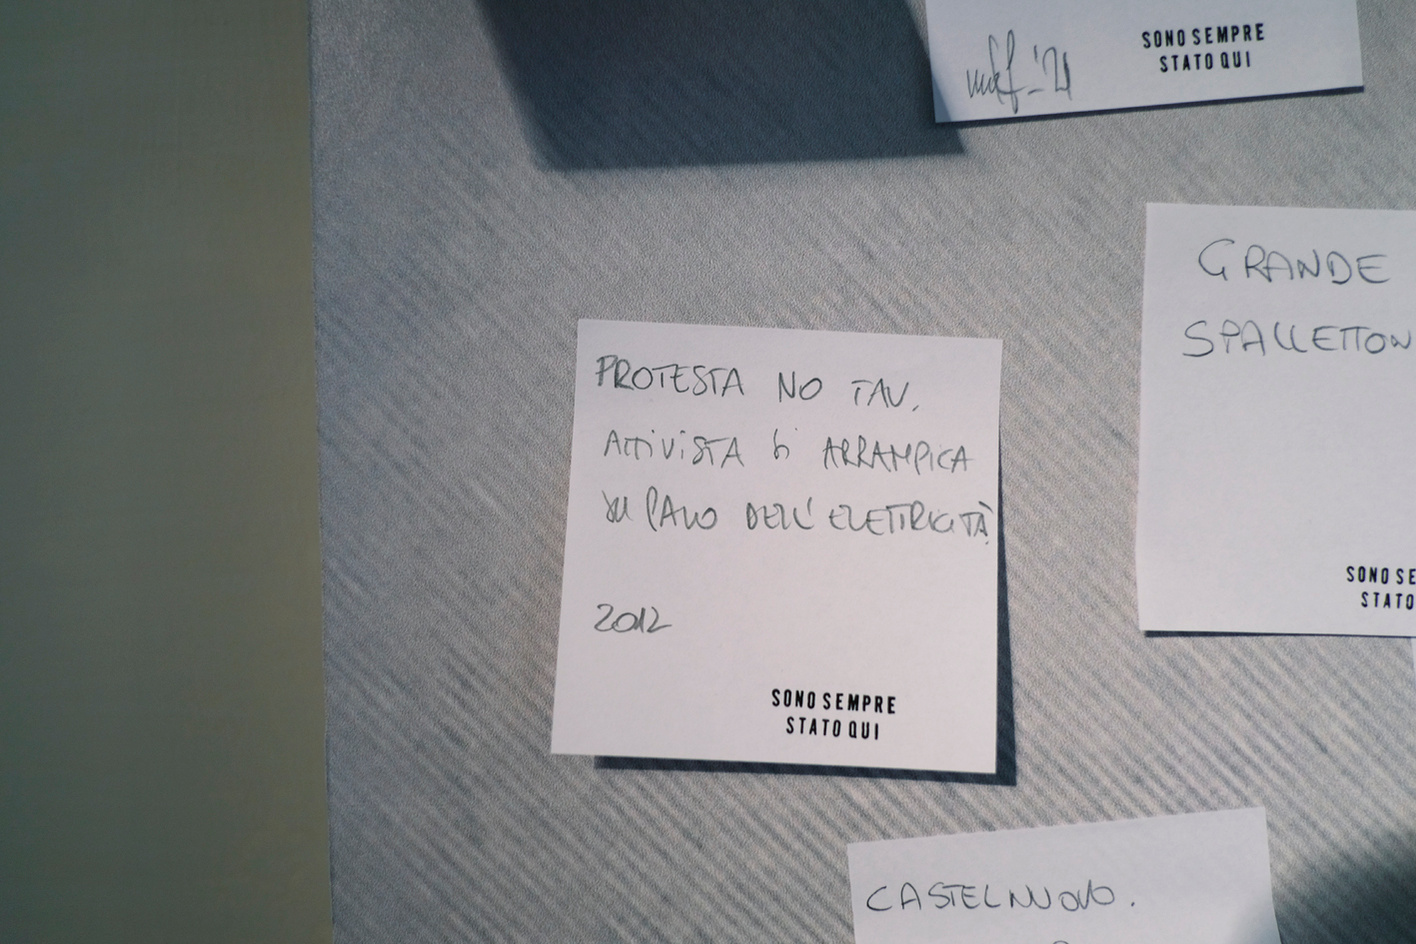 SONO SEMPRE
STATO QUI
GRANDE
SPALLETTON
SONO SE
STATO
PROTESTA NO TAV.
ATTIVISTA SI ARRAMPICA
SU PALO DELL'ELETTRICITÀ
2012
SONO SEMPRE
STATO QUI
CASTELNUOVO.